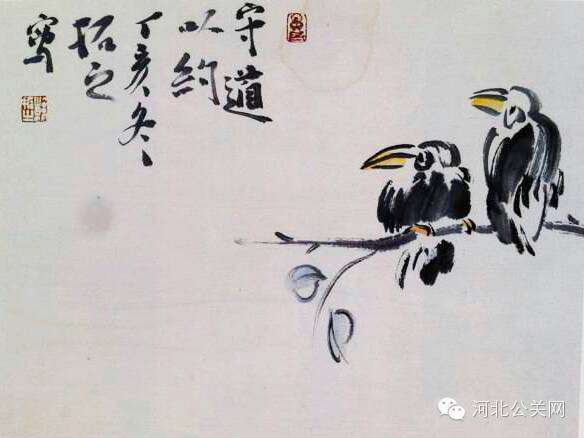 守道
以約
丁亥冬
拓之
寫
河北公关网